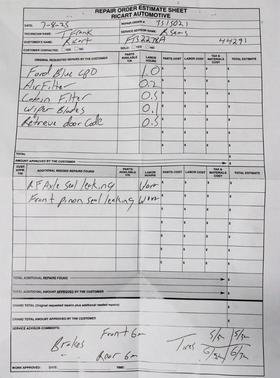 REPAIR ORDER ESTIMATE SHEET
RICART AUTOMOTIVE
DATE: 7-8-25 REPAIR ORDER #
TECHNICIAN NAME: T Frank SERVICE ADVISOR NAME: R Sams
CUSTOMER'S NAME: 44291
CUSTOMER CONTACTED: YES NO SOLD: YES NO
ORIGINAL REQUESTED REPAIRS BY THE CUSTOMER PARTS AVAILABLE Y/N LABOR HOURS PARTS COST LABOR COST TAX & MATERIALS COST TOTAL ESTIMATE
Ford Blue CPO 1.0
Air Filter 0.2
Cabin Filter 0.5
Wiper Blades 0.1
Retrieve door Code 0.5
TOTAL
AMOUNT APPROVED BY THE CUSTOMER
CUST. APPR. Y/N ADDITIONAL NEEDED REPAIRS FOUND PARTS AVAILABLE Y/N LABOR HOURS PARTS COST LABOR COST TAX & MATERIALS COST TOTAL ESTIMATE
RF Axle seal leaking Warr
Front pinon seal leaking Warr
TOTAL ADDITIONAL REPAIRS FOUND
TOTAL ADDITIONAL AMOUNT APPROVED BY THE CUSTOMER
GRAND TOTAL (Original requested repairs plus additional needed repairs)
GRAND TOTAL AMOUNT APPROVED BY THE CUSTOMER
SERVICE ADVISOR COMMENTS:
Front 6m
Brakes Tires 5/32 5/32
Rear 6m 6/32 6/32
WORK APPROVED: DATE TIME: